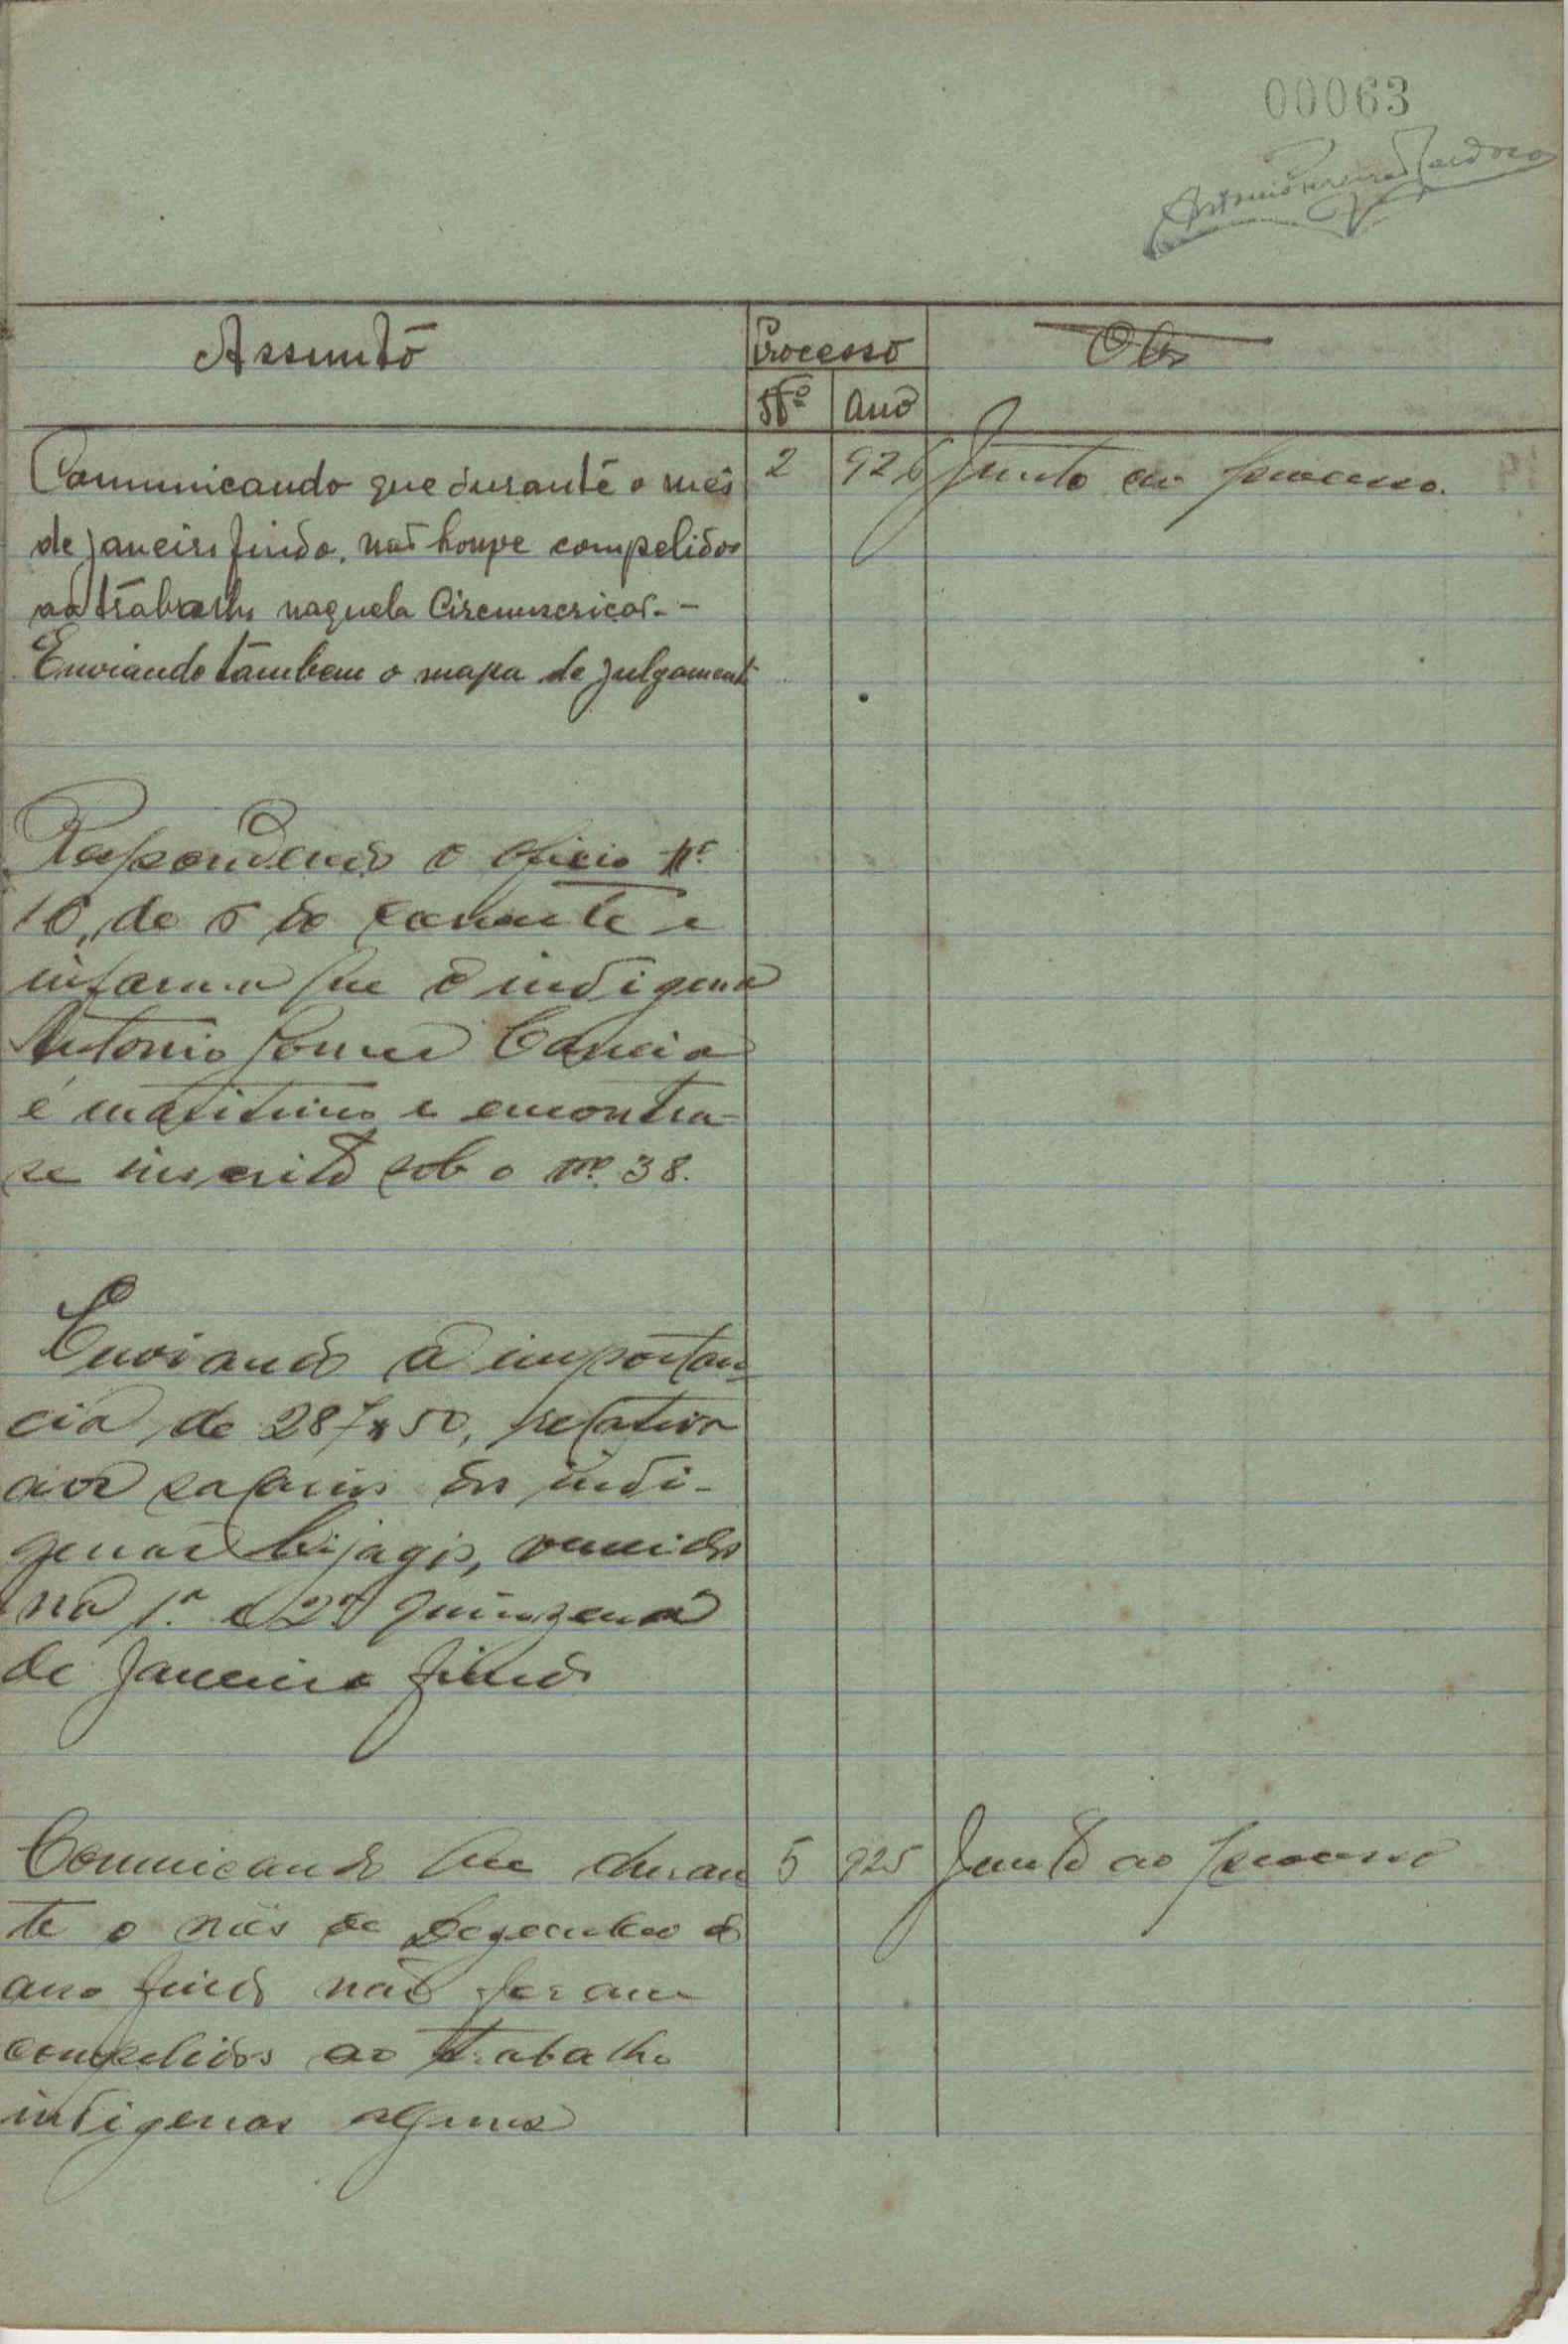 00063
Antonio Pereira Cardoso
Assunto
Processo
Obs
Nº
Ano
Comunicando que durante o mês
de janeiro findo, não houve compelidos
ao trabalho naquela Circunscrição. -
Enviando tambem o mapa de julgamento
2
926
Junto ao processo.
Respondendo o oficio nº
16, de 5 do corrente e
informa que o indigena
Antonio Gomes Correia
é maritimo e encontra-
se inscrito sob o nº 38.
Enviando a importan-
cia de 287$50, relativa
aos salarios dos indi-
genas bijagós,
na 1ª e 2ª quinzena
de Janeiro findo
Comunicando que duran
te o mês de Dezembro do
ano findo não foram
compelidos ao trabalho
indigenas alguns
5
925
Junto ao processo